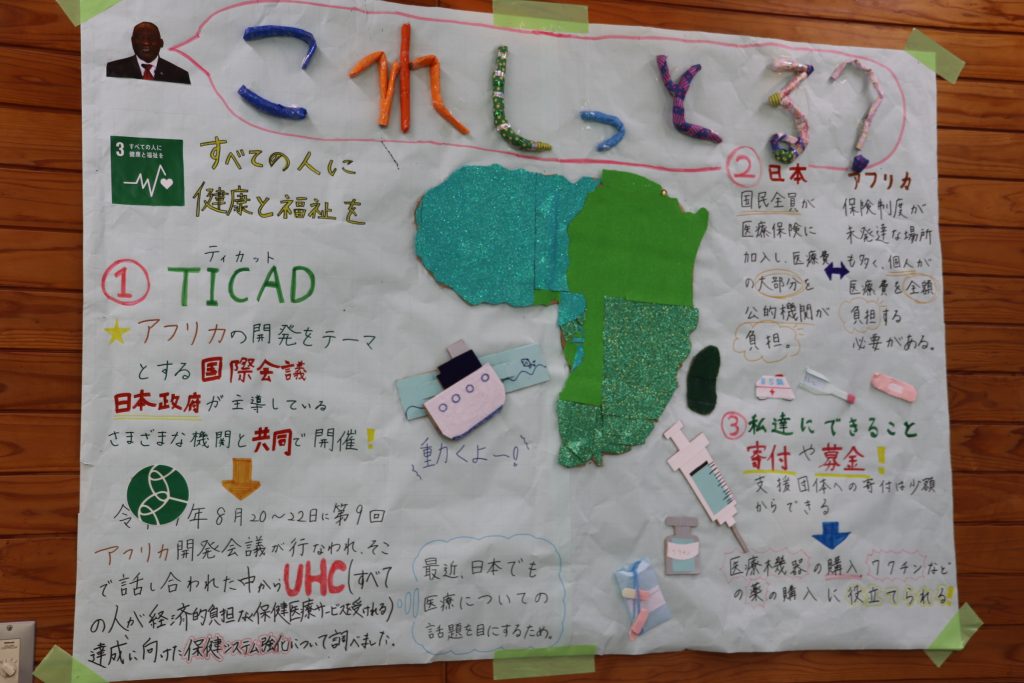 これしっとる?
3 すべての人に
健康と福祉を
すべての人に
健康と福祉を
①
ティカット
TICAD
アフリカの開発をテーマ
とする国際会議
日本政府が主導している
さまざまな機関と共同で開催!
年8月20〜22日に第9回
アフリカ開発会議が行なわれ、そこ
で話し合われた中からUHC(すべて
の人が経済的負担なく保健医療サービスを受けれる)
達成に向けた保健システム強化について調べました。
動くよ〜!
最近、日本でも
医療についての
話題を目にするため。
②日本
国民全員が
医療保険に
加入し、医療費
の大部分を
公的機関が
負担。
アフリカ
保険制度が
未発達な場所
も多く、個人が
医療費を全額
負担する
必要がある。
③私達にできること
寄付や募金!
支援団体への寄付は少額
からできる
ワクチン
医療機器の購入、ワクチンなど
の薬の購入に役立てられる!